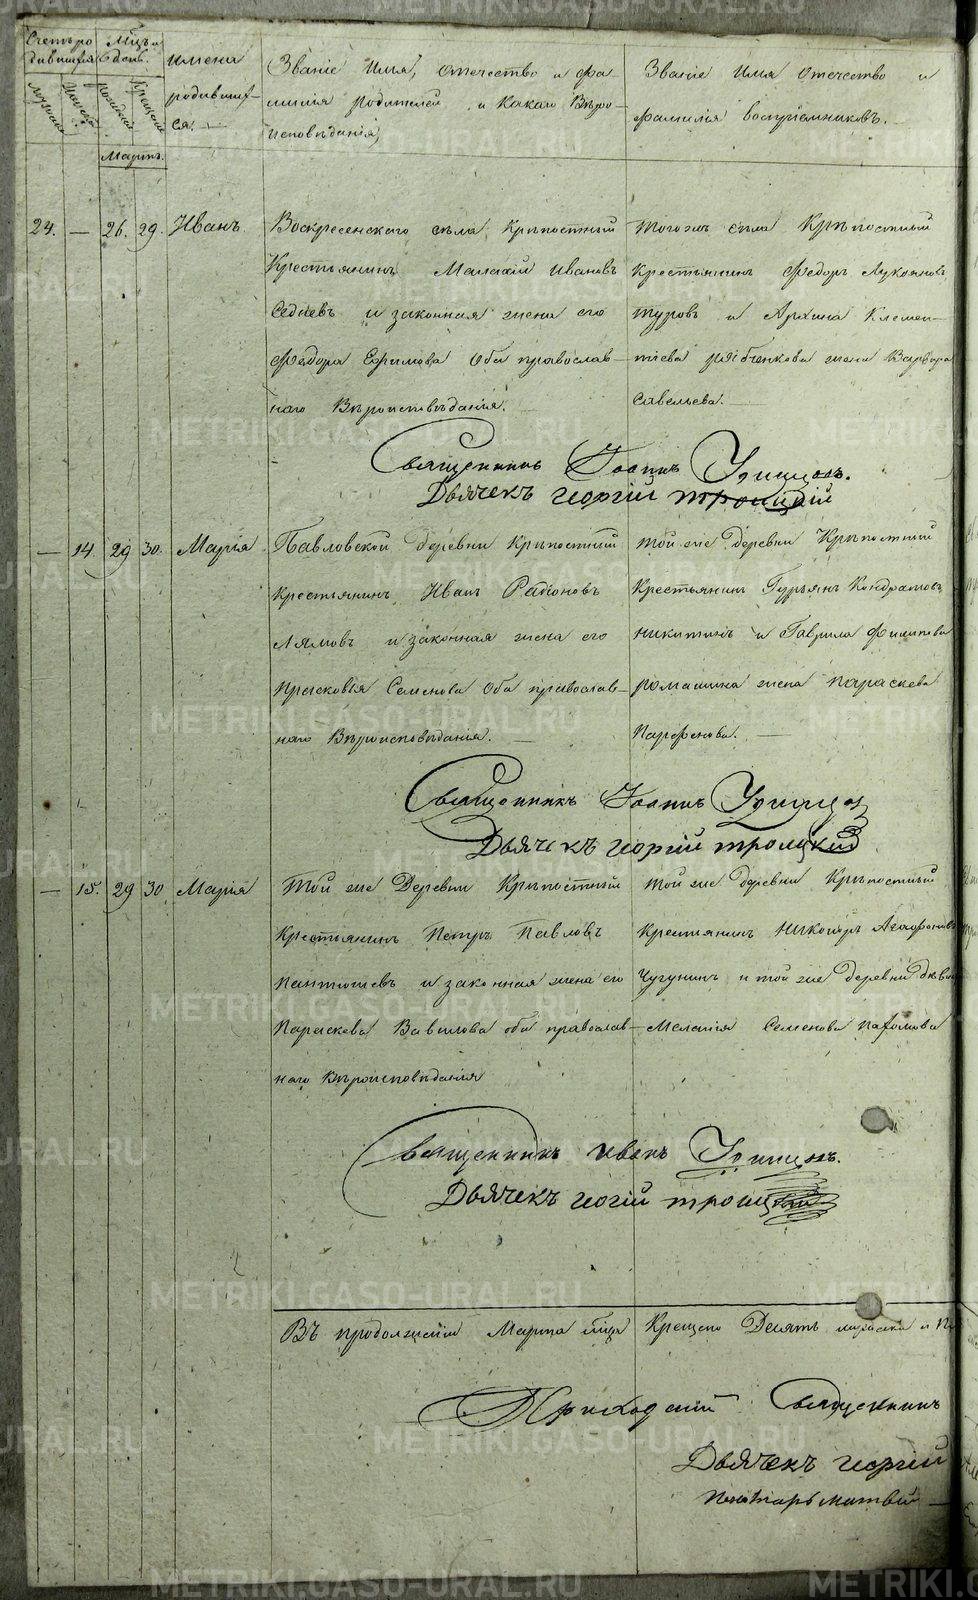 Счетъ родившихся
Мѣсяцъ и день.
Имена родившихся.
Званіе Имя, отечество и фамилія родителей и какаго Вѣроисповѣданія
Званіе Имя отечество и фамилія воспріемниковъ.
мужескъ
женскъ
рожденія
Крещенія
Мартъ.
24. — 26. 29. Иванъ
Воскресенскаго села Крѣпостный
Крестьянинъ Ивановъ
Седневъ и законная жена его
Федора Ефимова Оба православ-
наго Вѣроисповѣданія.
тогожъ села Крѣпостный
крестьянинъ Федоръ Лукояновъ
туровъ и Клемен-
тіева жена Варвара
Савельева.
Священникъ Іоаннъ
Дьячекъ георгій троицкій
— 14. 29 30. Марія
Павловской деревни Крѣпостный
Крестьянинъ Иванъ Радіоновъ
Лямовъ и законная жена его
Прасковья Семенова Оба православ-
наго Вѣроисповѣданія.
той же деревни Крѣпостный
Крестьянинъ Гурьянъ Кондратовъ
никитинъ и Гаврила Филипова
ромашина жена параскева
Парфенова.
Священникъ Іоаннъ
Дьячекъ георгій троицкій
— 15. 29 30. Марія
Той же Деревни Крѣпостный
Крестьянинъ Петръ Павловъ
Пантюшевъ и законная жена его
Параскева Вавилова оба православ-
наго Вѣроисповѣданія
той же деревни Крѣпостный
Крестьянинъ Никифоръ Агафоновъ
Чугунинъ и той же деревни
Меланія Семенова пахомова
Священникъ иванъ
Дьячекъ геогій троицкій
Въ продолженіи Марта м-ца Крещено Десять мужеска и
Приходскій Священникъ
Дьячекъ георгій
Пономарь матвѣй
METRIKI.GASO-URAL.RU